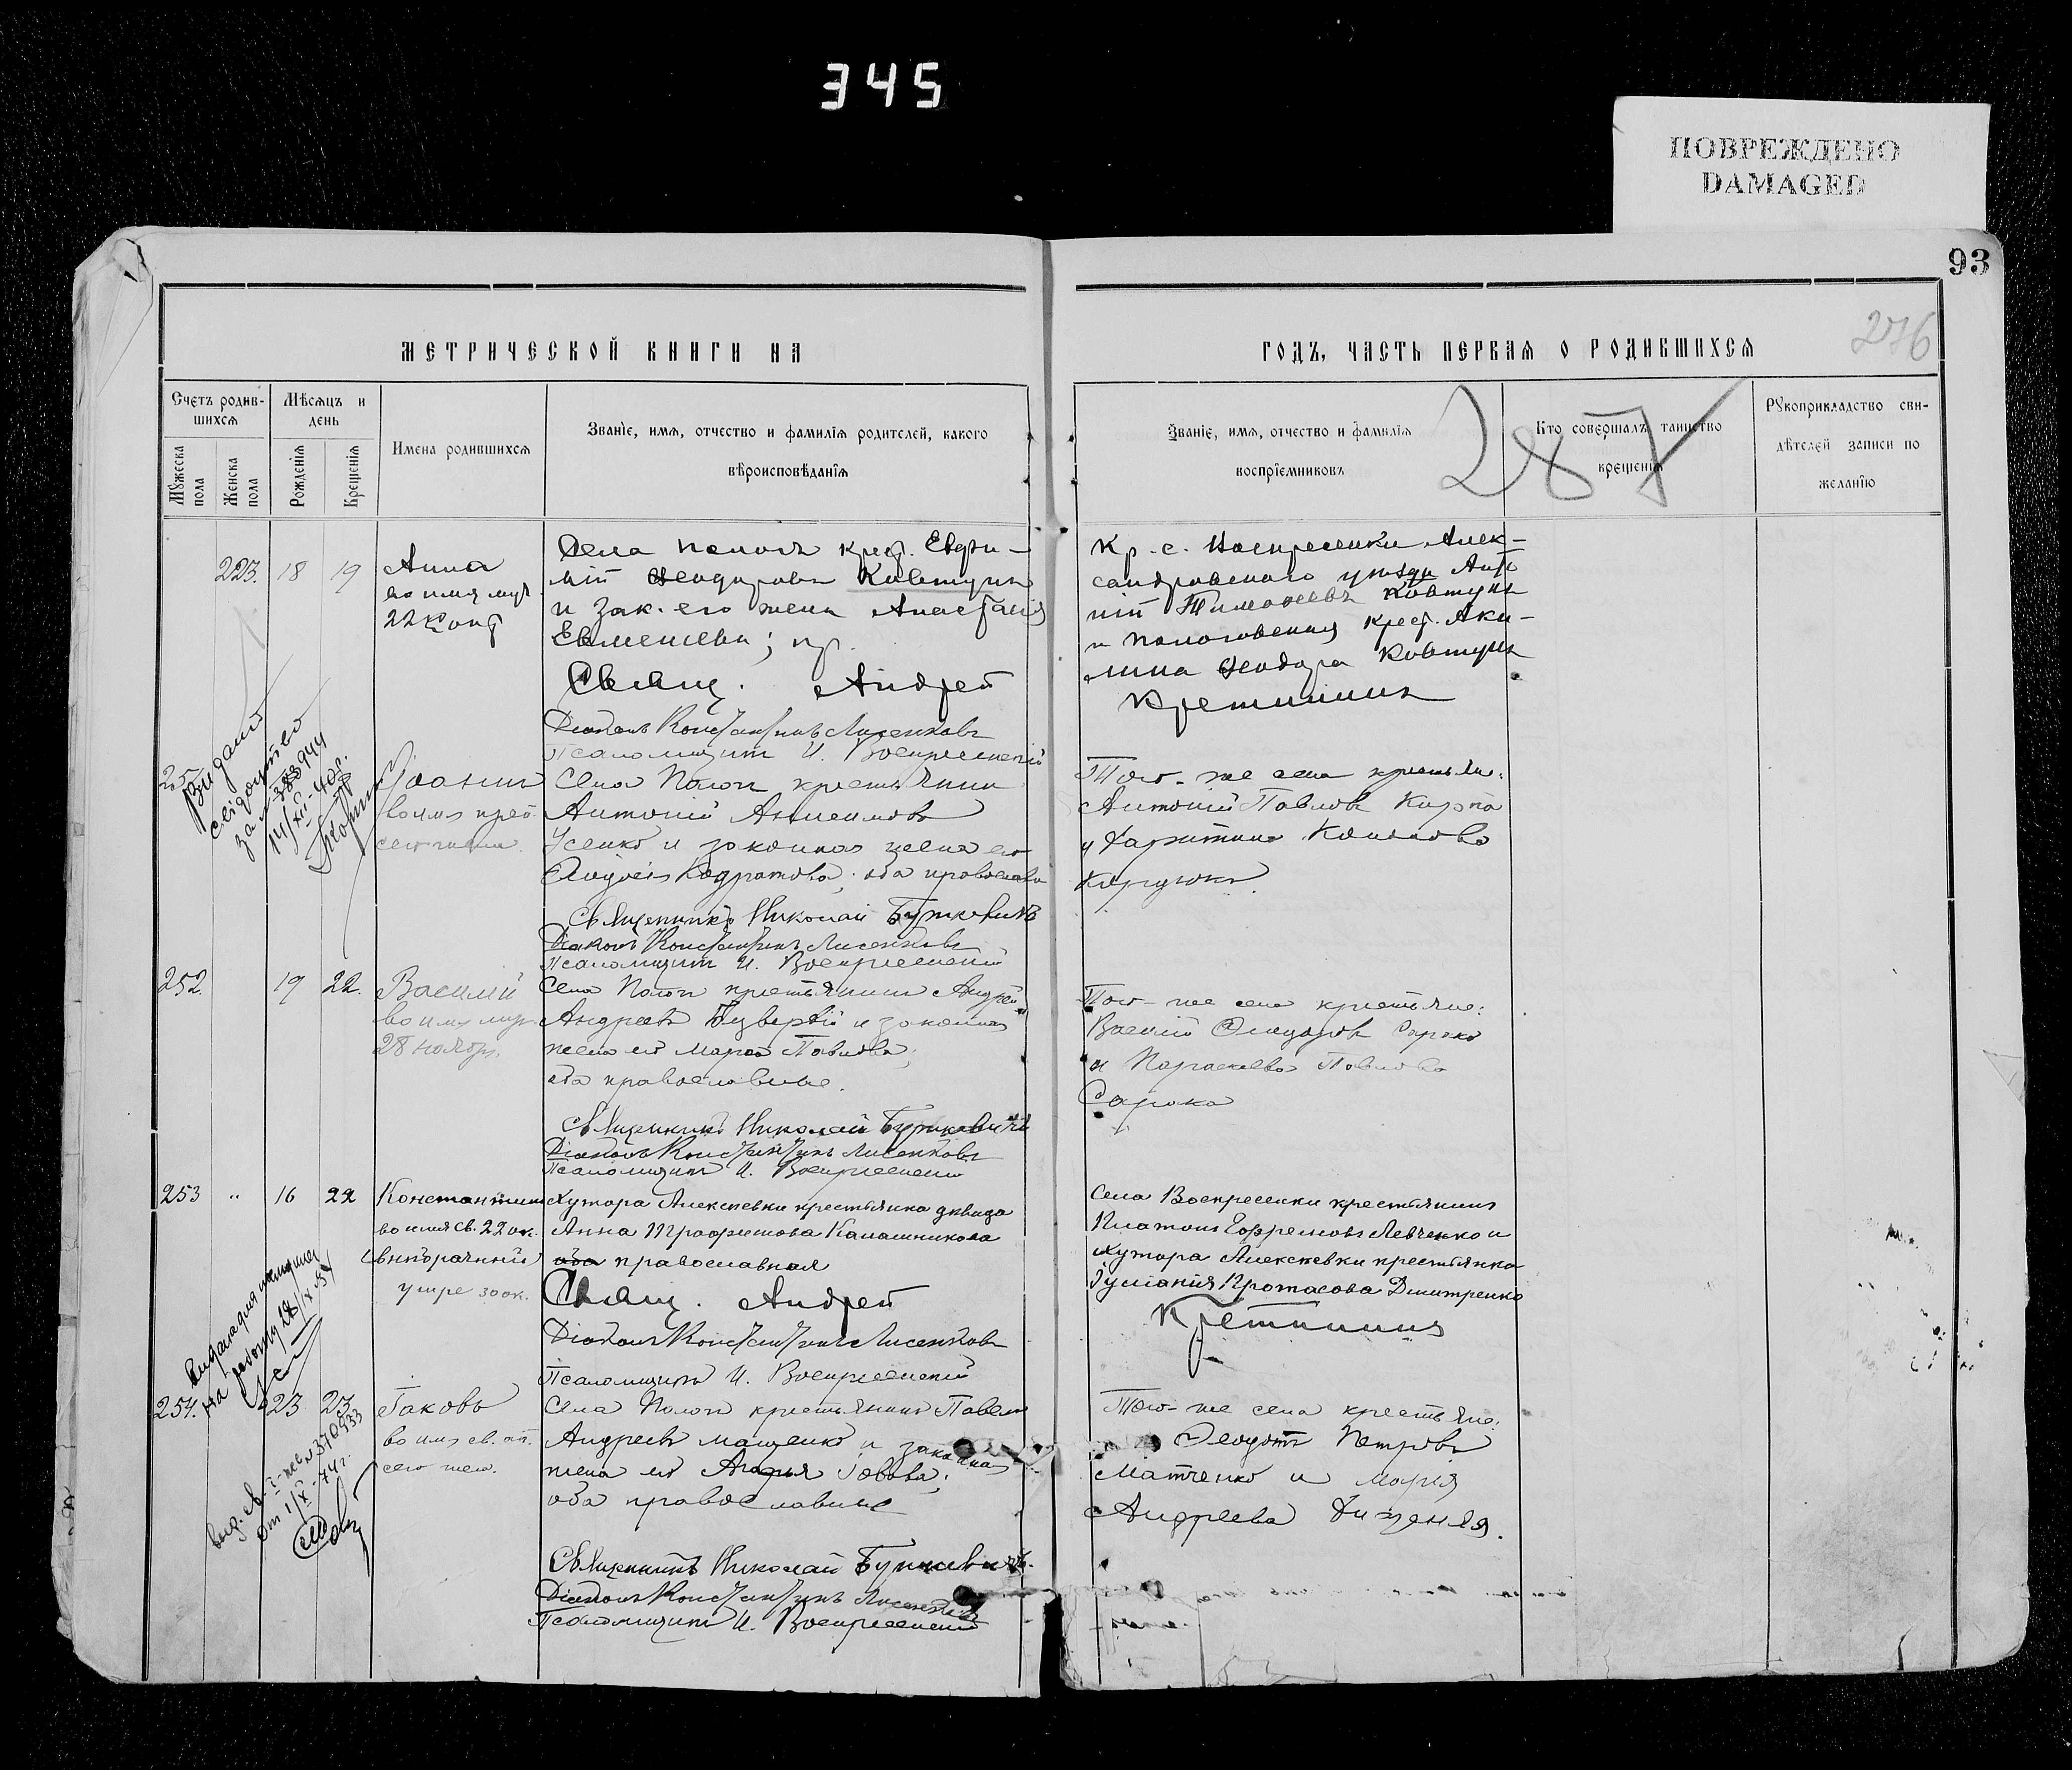 345
ПОВРЕЖДЕНО
DAMAGED
93
276
287
МЕТРИЧЕСКОЙ КНИГИ НА
ГОДЪ, ЧАСТЬ ПЕРВАЯ О РОДИВШИХСЯ
Счетъ родив-
шихся
Мѣсяцъ и
день
Мужеска
пола
Женска
пола
Рожденія
Крещенія
Имена родившихся
Званіе, имя, отчество и фамилія родителей, какого
вѣроисповѣданія
Званіе, имя, отчество и фамилія
воспріемниковъ
Кто совершалъ таинство
крещенія
Рукоприкладство сви-
дѣтелей записи по
желанію
223. 18 19
Анна
во имя муч.
22
Села Пологъ крест. Евфи-
мій Ѳеодоровъ Ковтунъ
и зак. его жена Анастасія
пр.
Свящ. Андрей
Кр. с. Воскресенки Алек-
сандровскаго уѣзда
Тимоѳеевъ Ковтунъ
и Пологовская крест. Аки-
лина Ѳеодора Ковтунъ
Кретининъ
Діаконъ Константинъ Лисенковъ
Псаломщикъ И. Воскресенскій
Видано
свідоцтво
за
14/XII-40р.
Іоаннъ
во имя преп.
Села Пологъ крестьянинъ
Антоній
Усенко и законная жена его
оба православн
Того-же села крестьяне:
Антоній Павловъ Карпа
и Харитина
Священникъ Николай Буткевичъ
Діаконъ Константинъ Лисенковъ
Псаломщикъ И. Воскресенскій
252. 19 22.
Василій
во имя муч.
28 ноября.
Села Пологъ крестьянинъ Андрей
Андреевъ и законная
жена его Марѳа Павлова;
оба православные.
Того-же села крестьяне:
Василій Сорока
и Параскева Павлова
Сорока
Священникъ Николай Буткевичъ
Діаконъ Константинъ Лисенковъ
Псаломщикъ И. Воскресенскій
253 " 16 22
Константинъ
во имя св. 22 ок.
(внѣбрачный)
умре 30 ок.
Хутора Алексѣевки крестьянка дѣвица
Анна Трофимова Калашникова
православная
Свящ. Андрей
Села Воскресенки крестьянинъ
Платонъ Ефремовъ Левченко и
Хутора Алексѣевки крестьянка
Іуліанія Протасова Дмитренко
Кретининъ
Діаконъ Константинъ Лисенковъ
Псаломщикъ И. Воскресенскій
254. 23 25
Іаковъ
во имя св. ап.
сего чис.
Села Пологъ крестьянинъ Павелъ
Андреевъ Мащенко и законная
жена его Агафья Іовова;
оба православные
Того-же села крестьяне:
Ѳеодотъ Петровъ
Матченко и Марія
Андреева
от 1/X-74г.
Священникъ Николай Буткевичъ.
Діаконъ Константинъ Лисенковъ
Псаломщикъ И. Воскресенскій